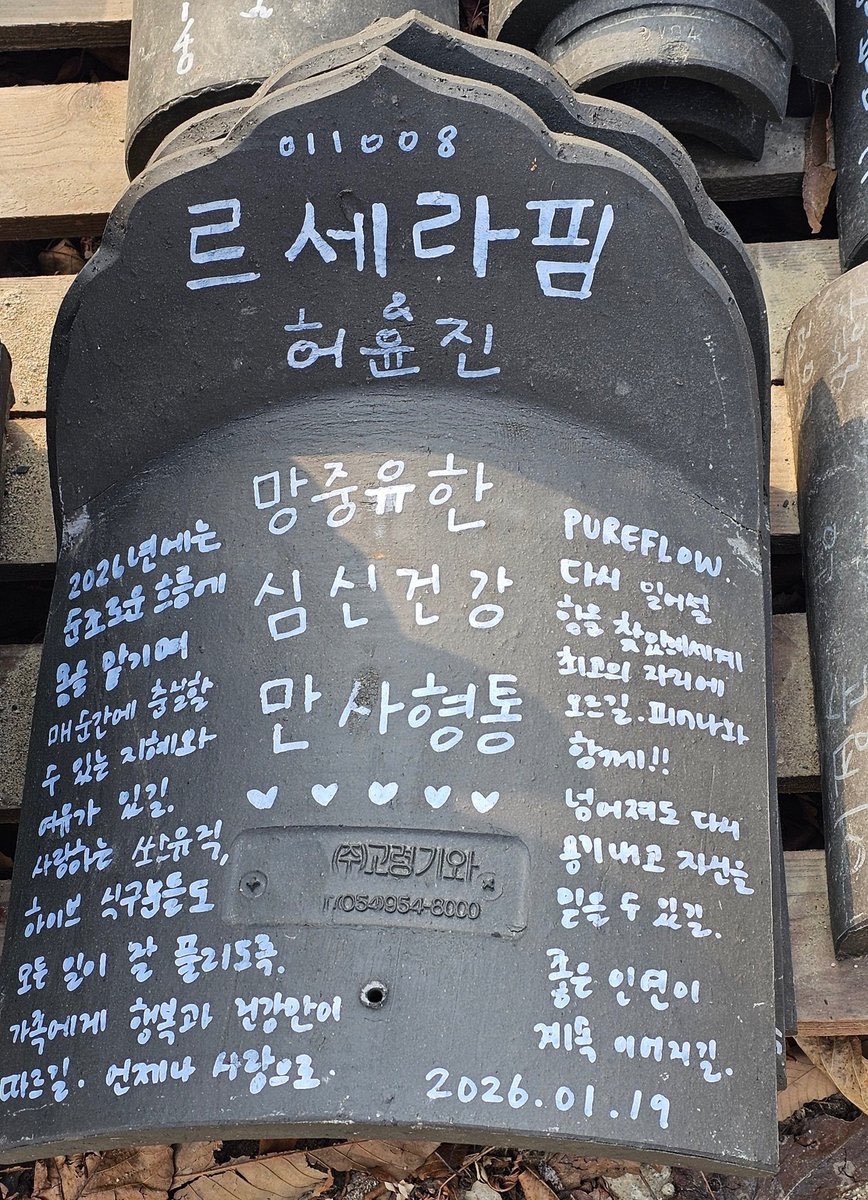 011008
르세라핌
&
허윤진
망중유한
심신건강
만사형통
♥ ♥ ♥ ♥ ♥
2026년에는
순조로운 흐름에
몸을 맡기며
매순간에 충실할
수 있는 지혜와
여유가 있길.
사랑하는 쏘스뮤직,
하이브 식구분들도
모든 일이 잘 풀리도록.
가족에게 행복과 건강만이
따르길. 언제나 사랑으로.
PUREFLOW.
다시 일어설
힘을 찾았
최고의 자리에
오르길. 피어나와
함께!!
넘어져도 다시
용기내고 자신을
믿을 수 있길.
좋은 인연이
계속 이어지길.
2026.01.19
(주)고령기와
T.(054)954-8000